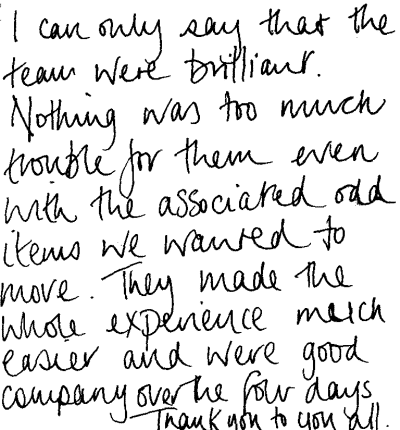 I can only say that the
team were brilliant.
Nothing was too much
trouble for them even
with the associated odd
items we wanted to
move. They made the
whole experience much
easier and were good
company over the four days
Thank you to you all.